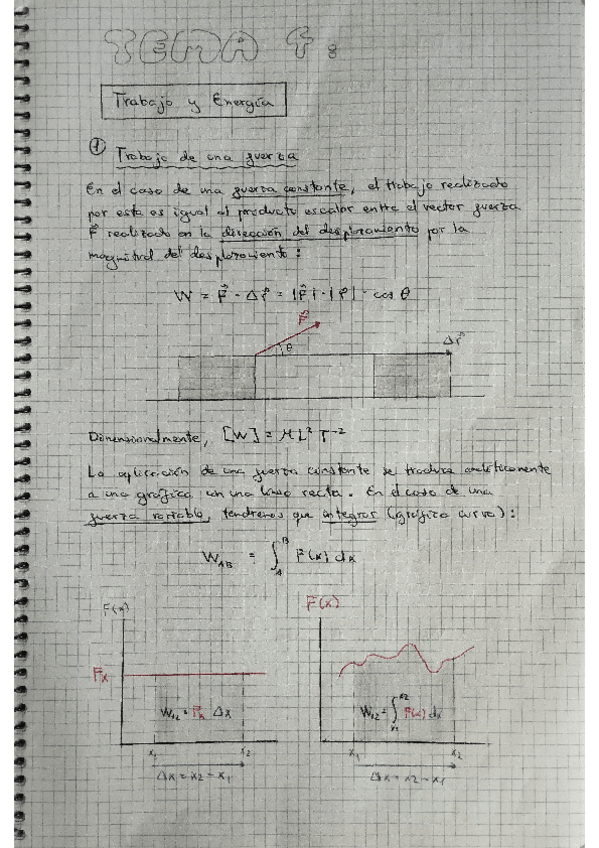 TEMA 8
Trabajo y Energía
① Trabajo de una fuerza
En el caso de una fuerza constante, el trabajo realizado
por esta es igual al producto escalar entre el vector fuerza
F⃗ realizado en la dirección del desplazamiento por la
magnitud del desplazamiento:
W = F⃗ · Δr⃗ = |F⃗| · |r⃗| · cos θ
F⃗
θ
Δr⃗
Dimensionalmente, [W] = M L² T⁻²
La aplicación de una fuerza constante se traduce analíticamente
a una gráfica con una línea recta. En el caso de una
fuerza variable, tendremos que integrar (gráfica curva):
W_AB = ∫_A^B F(x) dx
F(x) F(x)
Fx
W₁₂ = Fx Δx W₁₂ = ∫_x1^x2 F(x) dx
x₁ x₂ x₁ x₂
Δx = x₂ - x₁ Δx = x₂ - x₁